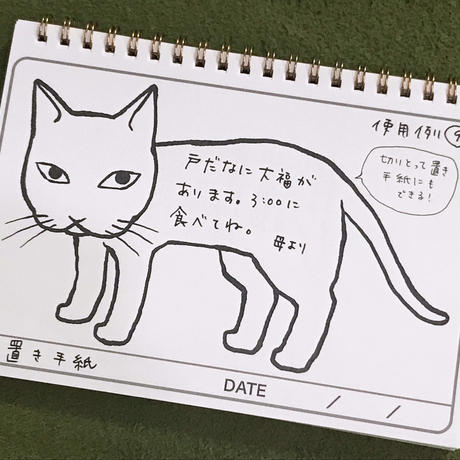 使用例 9
切りとって置き
手紙にも
できる!
戸だなに大福が
あります。3:00に
食べてね。
母より
置き手紙
DATE / /